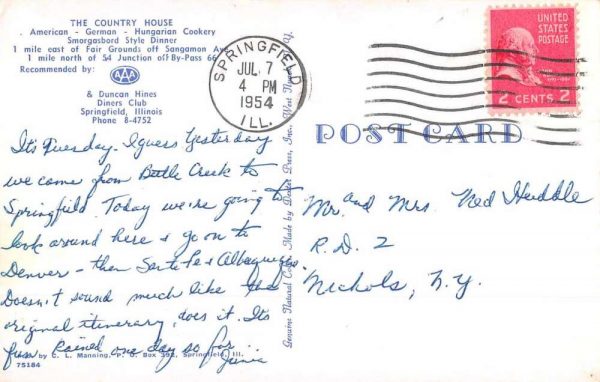 THE COUNTRY HOUSE
American - German - Hungarian Cookery
Smorgasbord Style Dinner
1 mile east of Fair Grounds off Sangamon Av
1 mile north of 54 Junction off By-Pass 66
Recommended by:
AAA
& Duncan Hines
Diners Club
Springfield, Illinois
Phone 8-4752
It's Tuesday - I guess yesterday
we came from Battle Creek to
Springfield. Today we're going to
look around here & go on to
Denver - then Santa Fe & Albuquerque.
Doesn't sound much like the
original itinerary, does it. Its
fun Rained one day so far
by C. L. Manning, P. O. Box 392, Springfield, Ill.
75184
Genuine Natural Color Made by Dexter Press, Inc., West Nyack, N. Y.
SPRINGFIELD
JUL 7
4 PM
1954
ILL.
UNITED
STATES
POSTAGE
2 CENTS 2
POST CARD
Mr. and Mrs. Ned
R.D. 2
Nichols, N.Y.